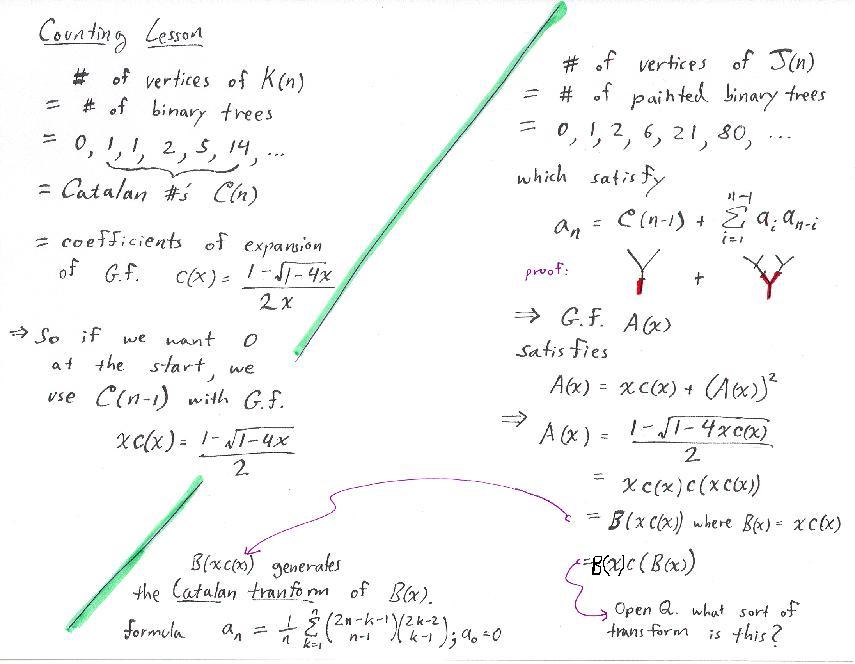 Counting Lesson
# of vertices of K(n)
= # of binary trees
= 0, 1, 1, 2, 5, 14, ...
= Catalan #'s C(n)
= coefficients of expansion
of G.f. c(x) = (1-√(1-4x))/(2x)
⇒ So if we want 0
at the start, we
use C(n-1) with G.f.
xc(x) = (1-√(1-4x))/2
# of vertices of J(n)
= # of painted binary trees
= 0, 1, 2, 6, 21, 80, ...
which satisfy
aₙ = C(n-1) + Σ_{i=1}^{n-1} aᵢ aₙ₋ᵢ
proof: +
⇒ G.f. A(x)
satisfies
A(x) = xc(x) + (A(x))²
⇒ A(x) = (1-√(1-4xc(x)))/2
= xc(x)c(xc(x))
= B(xc(x)) where B(x) = xc(x)
= B(x)c(B(x))
Open Q. what sort of
transform is this?
B(xc(x)) generates
the Catalan tranform of B(x).
formula aₙ = 1/n Σ_{k=1}^{n} (2n-k-1 choose n-1)(2k-2 choose k-1); a₀=0